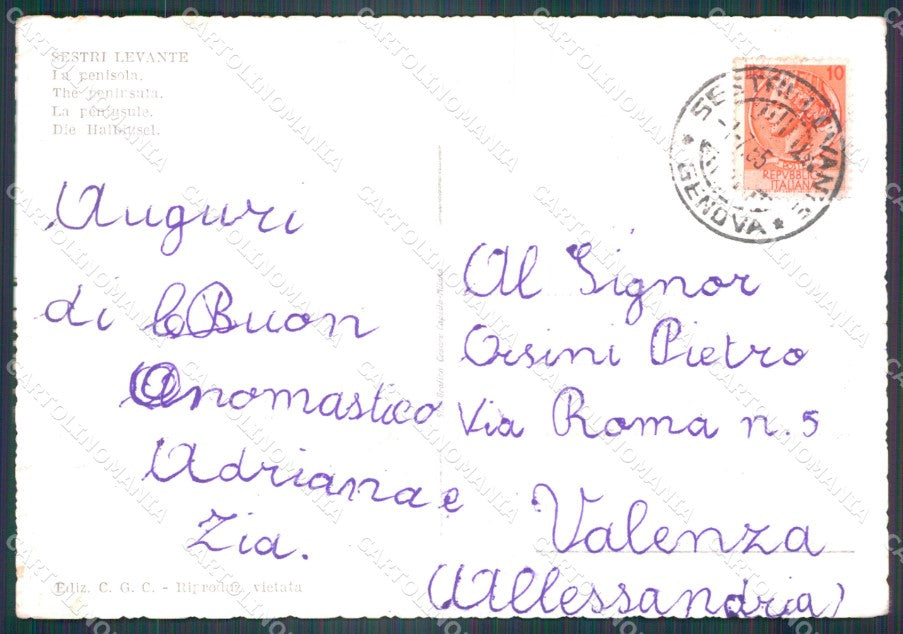 SESTRI LEVANTE
La penisola.
The peninsula.
La péninsule.
Die Halbinsel.
Auguri
di Buon
Onomastico
Adriana e
Zia.
Al Signor
Orsini Pietro
Via Roma n. 5
Valenza
(Allessandria)
10
POSTE
REPVBBLICA
ITALIANA
SESTRI LEVANTE
* GENOVA *
Ediz. C. G. C. - Riproduz. vietata
CARTOLINOMANIA